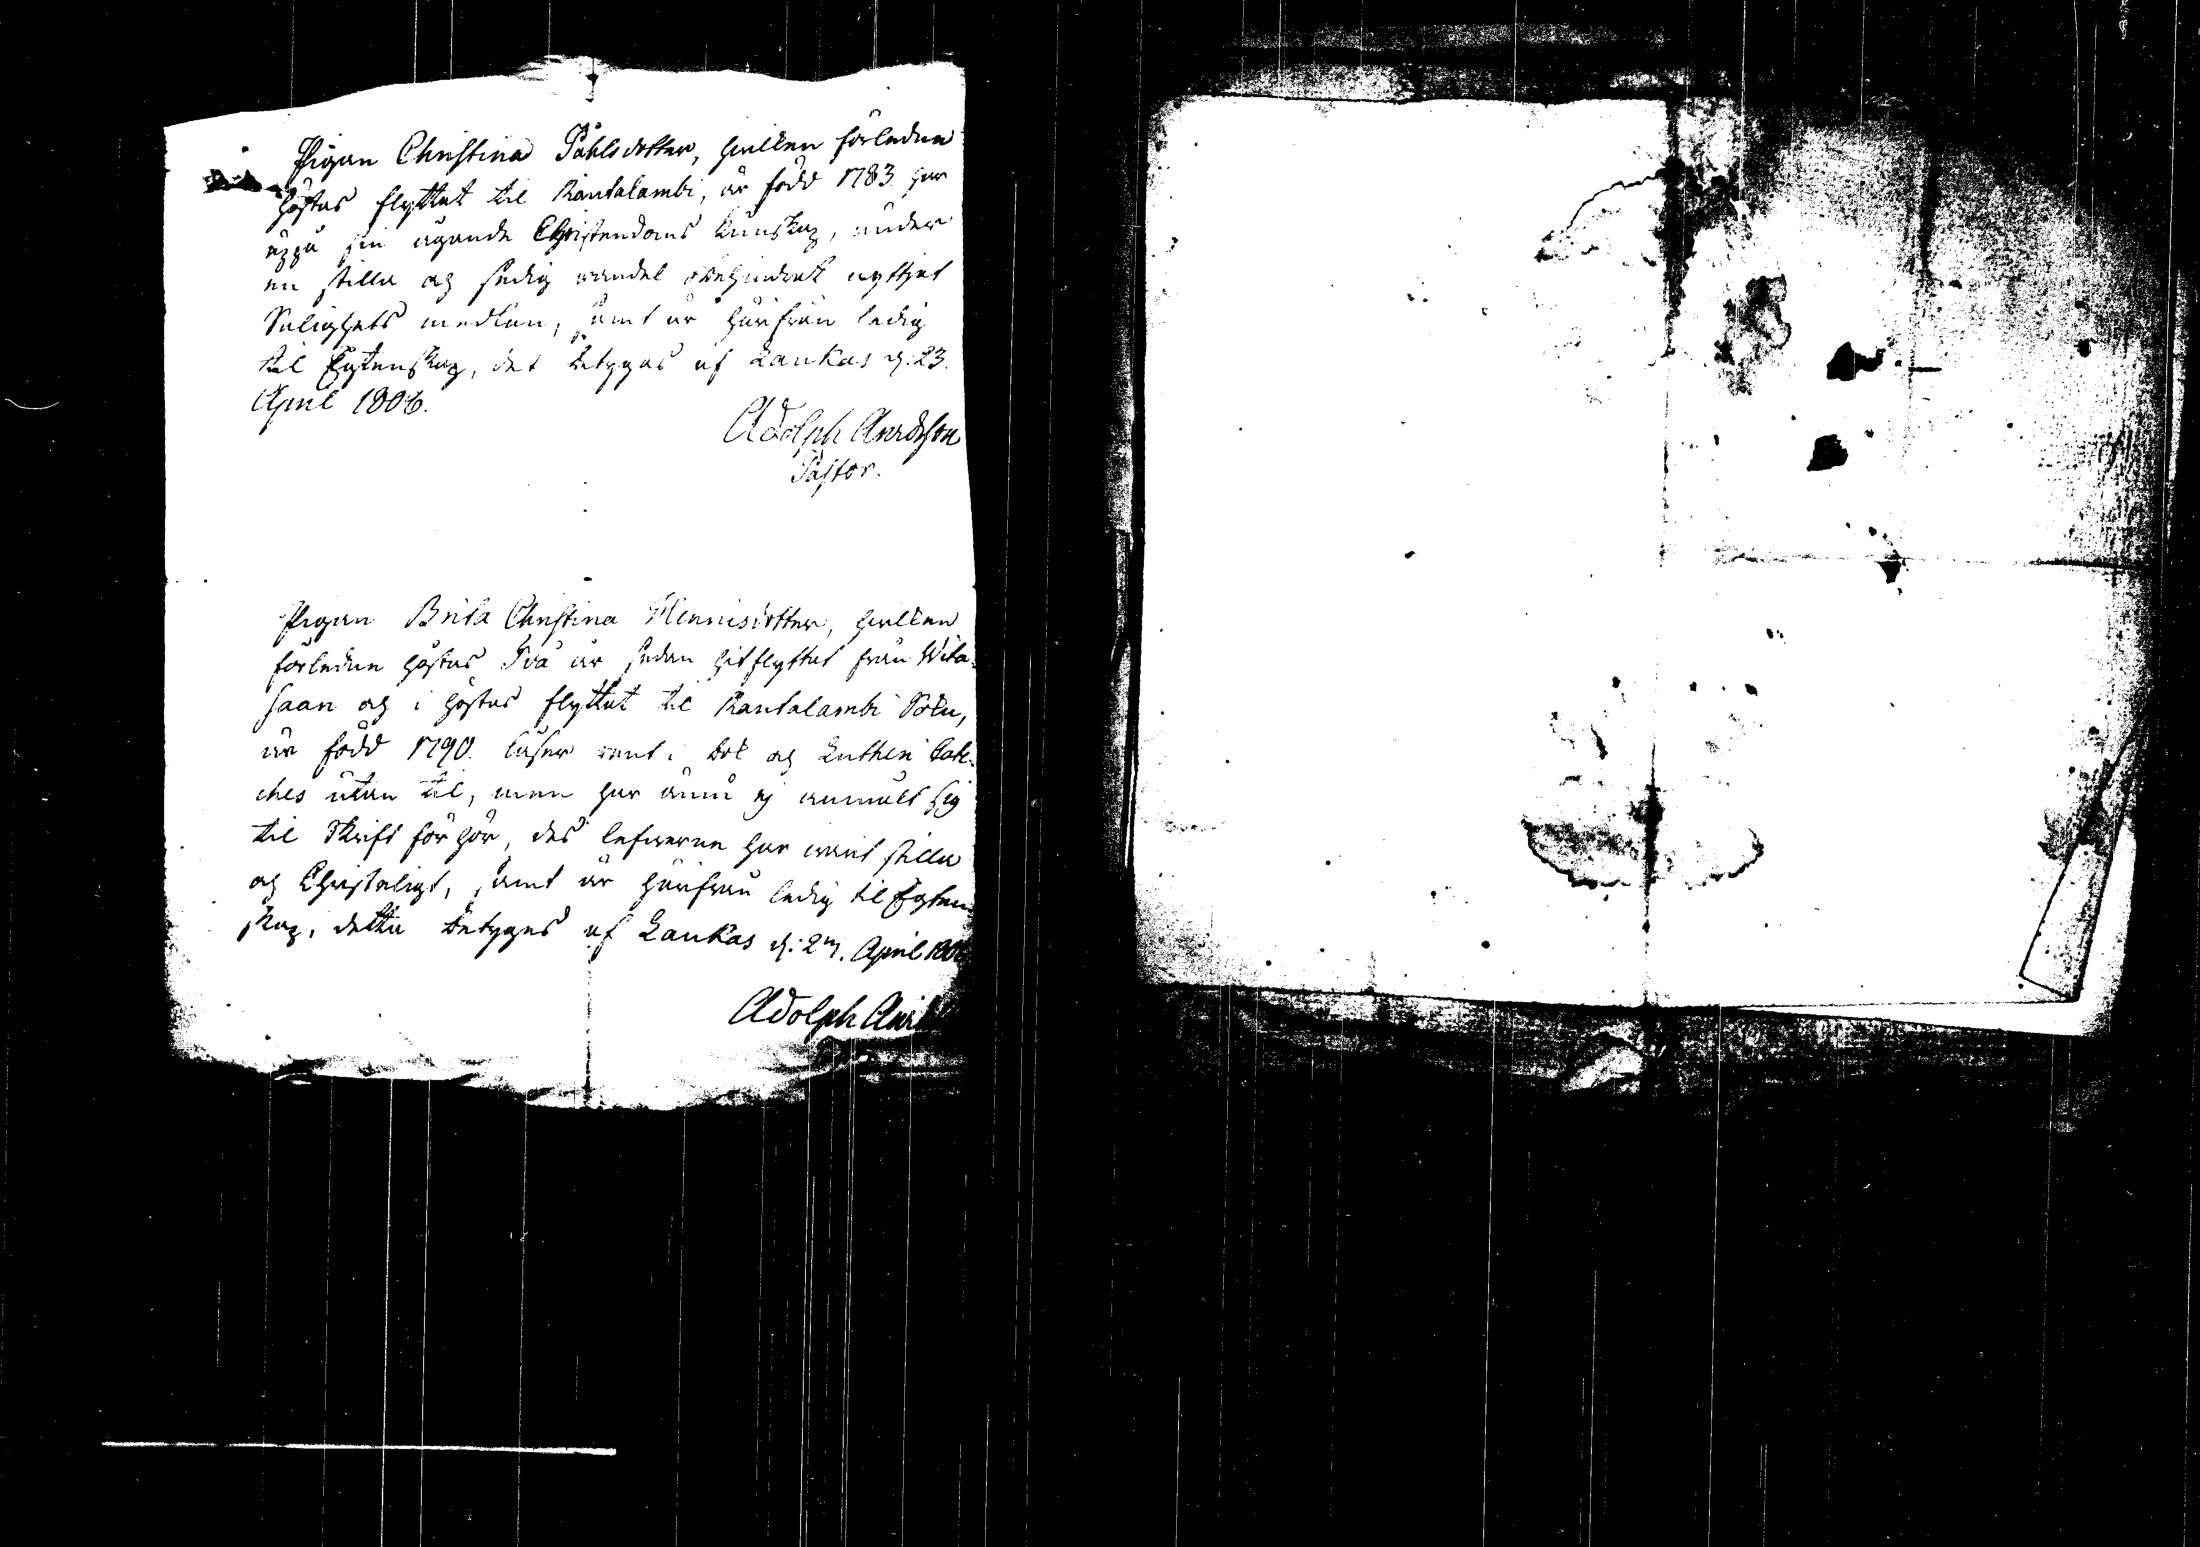 Pigan Christina Påhlsdotter, hvilken förleden
höstas flyttat til Rautalambi, är född 1783. har
uppå sin ägande Christendoms kunskap, under
en stilla och sedig vandel obehindrat nyttjat
Salighets medlen, samt är härifrån ledig
til Ächtenskap, det betygas af Laukas d: 23.
April 1806.
Adolph
Pastor.
Pigan Brita Christina Hinricsdotter, hvilken
förleden höstas Två år sedan hitflyttat från Wita-
saari och i höstas flyttat til Rautalambi Sokn,
är född 1790. läser rent i bok och Lutheri Cate-
ches utan til, men har ännu ej anmält sig
til Skriftförhör, des lefverne har varit stilla
och Christeligt, samt är härifrån ledig til Ächten-
skap, detta betygas af Laukas d: 27. April 1806
Adolph